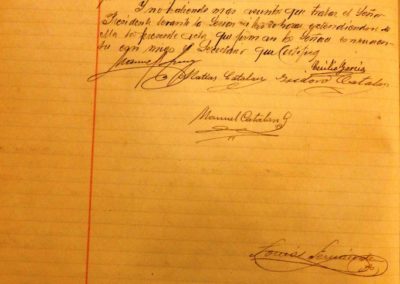 Y no habiendo mas asunto que tratar el Señor
Presidente levanta la sesion extendiendose de
ella la presente acta que firman los Señores concurren-
tes conmigo el Secretario que certifico
Emilio Garcia
Matias Catalan Isidoro Catalan
Manuel Catalan G
Tomás